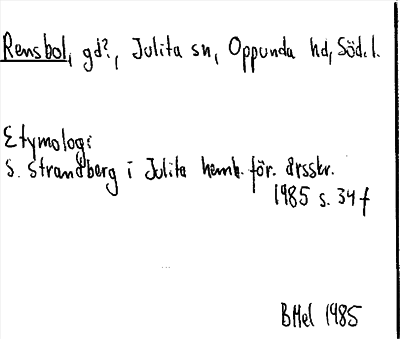 Rensbol, gd?, Julita sn, Oppunda hd, Söd. l.
Etymologi
S. Strandberg i Julita hemb. för. årsskr.
1985 s. 34 f
BMel 1985